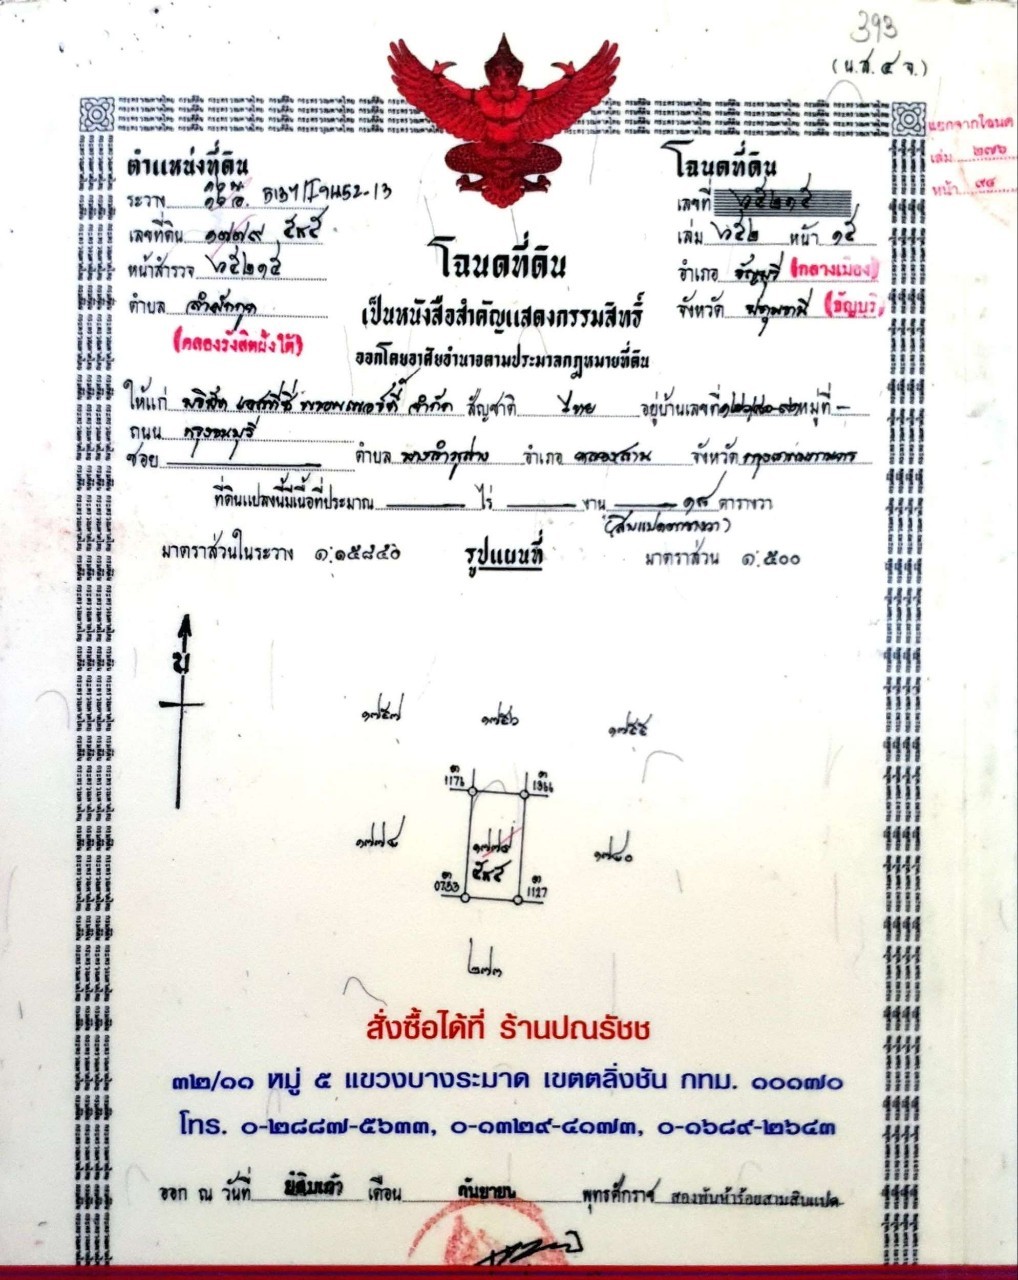 393
(น.ส.๔ จ.)
แยกจากโฉนด
เล่ม ๒๗๖
หน้า ๙๔
ตำแหน่งที่ดิน
ระวาง 5137 I
เลขที่ดิน ๑๗๗๙ ๕๙๕
หน้าสำรวจ ๖๕๒๑๕
ตำบล
(คลองรังสิตฝั่งใต้)
โฉนดที่ดิน
เลขที่ ๖๕๒๑๕
เล่ม ๖๕๒ หน้า ๑๕
อำเภอ ธัญบุรี (กลางเมือง)
จังหวัด ปทุมธานี (ธัญบุรี)
โฉนดที่ดิน
เป็นหนังสือสำคัญแสดงกรรมสิทธิ์
ออกโดยอาศัยอำนาจตามประมวลกฎหมายที่ดิน
ให้แก่ บริษัท พรอพเพอร์ตี้ จำกัด สัญชาติ ไทย อยู่บ้านเลขที่ หมู่ที่ -
ถนน กรุงธนบุรี
ซอย ตำบล บางลำภูล่าง อำเภอ คลองสาน จังหวัด กรุงเทพมหานคร
ที่ดินแปลงนี้มีเนื้อที่ประมาณ ไร่ งาน ๑๘ ตารางวา
(สิบแปดตารางวา)
มาตราส่วนในระวาง ๑:๑๕๘๔๐ รูปแผนที่ มาตราส่วน ๑:๕๐๐
น
๑๗๕๗ ๑๗๕๖ ๑๗๕๕
๑๗๗๘ ๑๗๗๙ ๑๗๘๐
๕๙๕
1127
๒๗๓
สั่งซื้อได้ที่ ร้านปณรัชช
๓๒/๑๑ หมู่ ๕ แขวงบางระมาด เขตตลิ่งชัน กทม. ๑๐๑๗๐
โทร. ๐-๒๘๘๗-๕๖๓๓, ๐-๑๓๒๙-๔๑๗๓, ๐-๑๖๘๙-๒๖๔๓
ออก ณ วันที่ ยี่สิบเก้า เดือน กันยายน พุทธศักราช สองพันห้าร้อยสามสิบแปด